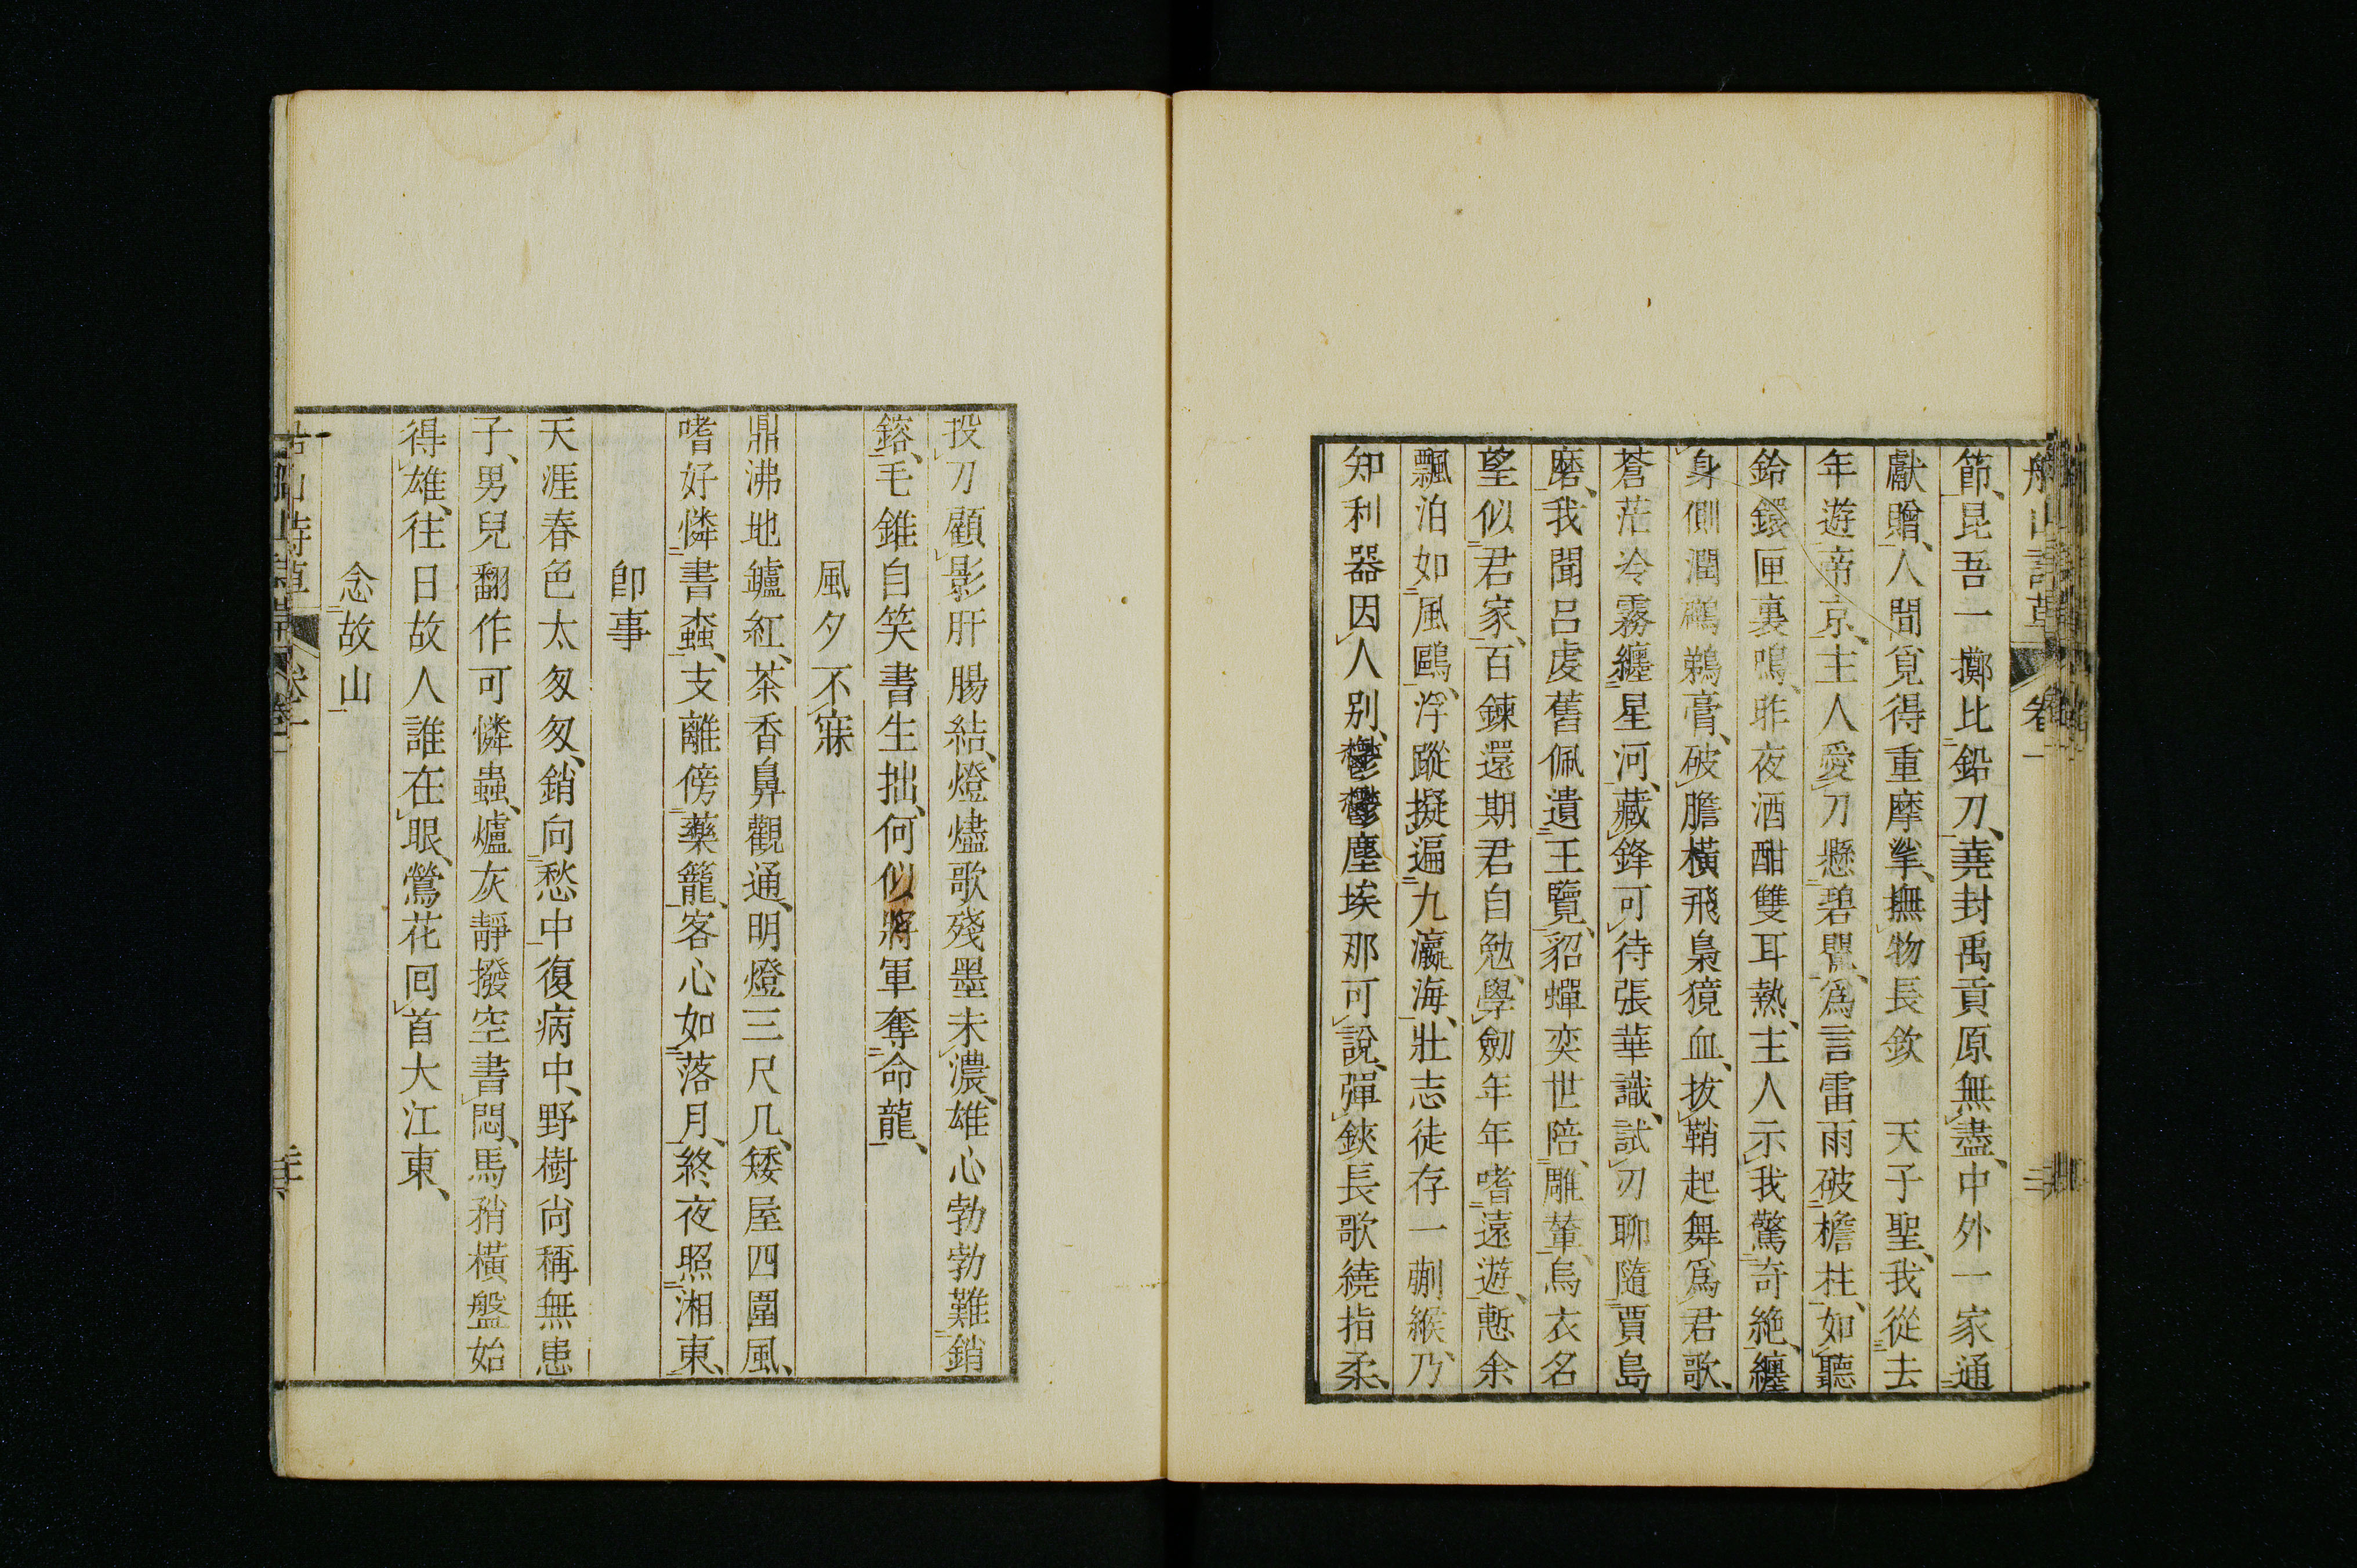 船山詩草 卷一
節、昆吾一擲比鉛刀、堯封禹貢原無盡、中外一家通
獻贈、人間覓得重摩挲、撫物長欽　天子聖、我從去
年遊帝京、主人愛刀懸碧䍤、爲言雷雨破檐柱、如聽
鈴鐶匣裏鳴、昨夜酒酣雙耳熱、主人示我驚奇絶、纏
身側潤鸊鵜膏、破膽橫飛梟獍血、拔鞘起舞爲君歌、
蒼茫冷霧纏星河、藏鋒可待張華識、試刃聊隨賈島
磨、我聞呂虔舊佩遺王覽、貂蟬奕世陪雕輦、烏衣名
望似君家、百鍊還期君自勉、學劒年年嗜遠遊、慙余
飄泊如風鷗、浮蹤擬遍九瀛海、壯志徒存一蒯緱、乃
知利器因人別、鬱鬱塵埃那可說、彈鋏長歌繞指柔、
投刀顧影肝腸結、燈燼歌殘墨未濃、雄心勃勃難銷
鎔、毛錐自笑書生拙、何似將軍奪命龍、
風夕不寐
鼎沸地鑪紅、茶香鼻觀通、明燈三尺几、矮屋四圍風、
嗜好憐書蠧、支離傍藥籠、客心如落月、終夜照湘東、
卽事
天涯春色太匆匆、銷向愁中復病中、野樹尙稱無患
子、男兒翻作可憐蟲、爐灰靜撥空書悶、馬矟橫盤始
得雄、往日故人誰在眼、鶯花回首大江東、
念故山
船山詩草 卷一